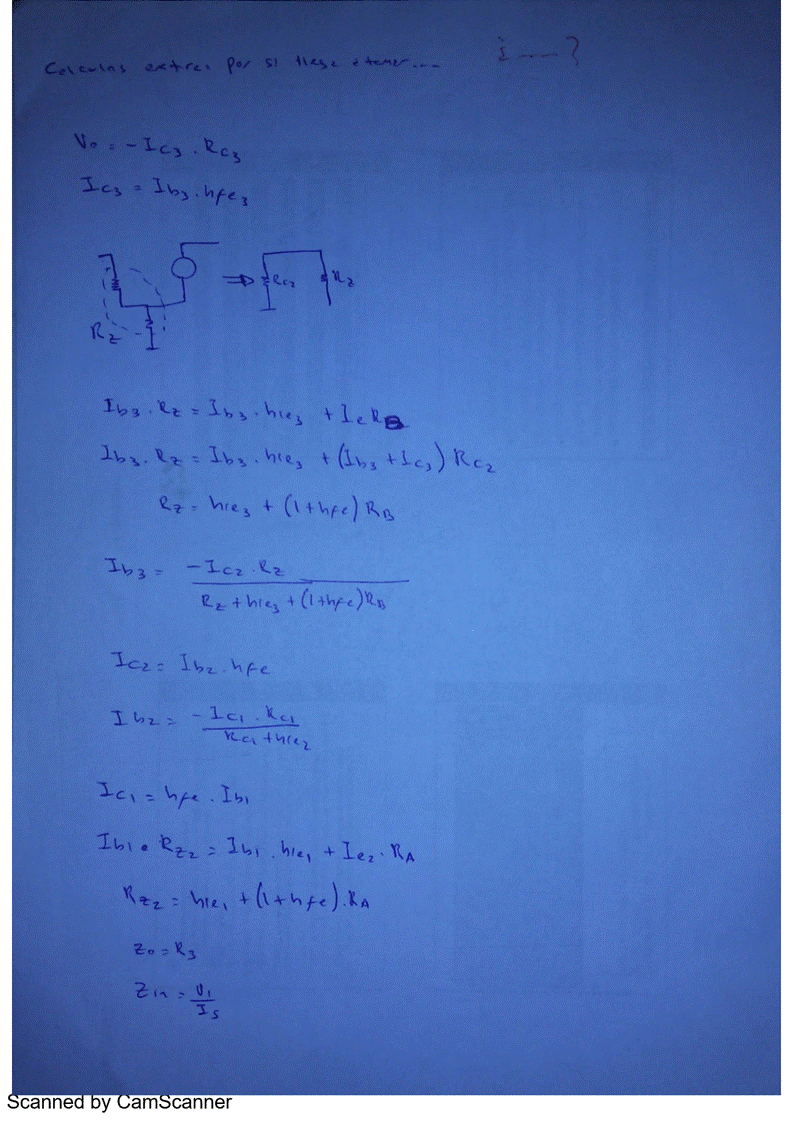 Calculos extras por si llega a tener....
¿ .... ?
Vo = -Ic3 . Rc3
Ic3 = Ib3 . hfe3
Rz
Rc2
Rz
Ib3 . Rz = Ib3 . hie3 + Ie RB
Ib3 . Rz = Ib3 . hie3 + (Ib3 + Ic3) Rc2
Rz = hie3 + (1+hfe) RB
Ib3 = -Ic2 . Rz / Rz + hie3 + (1+hfe) RB
Ic2 = Ib2 . hfe
Ib2 = -Ic1 . Rc1 / Rc1 + hie2
Ic1 = hfe . Ib1
Ib1 . Rz2 = Ib1 . hie1 + Ie2 . RA
Rz2 = hie1 + (1+hfe) . RA
Zo = R3
Zin = V1 / Is
Scanned by CamScanner